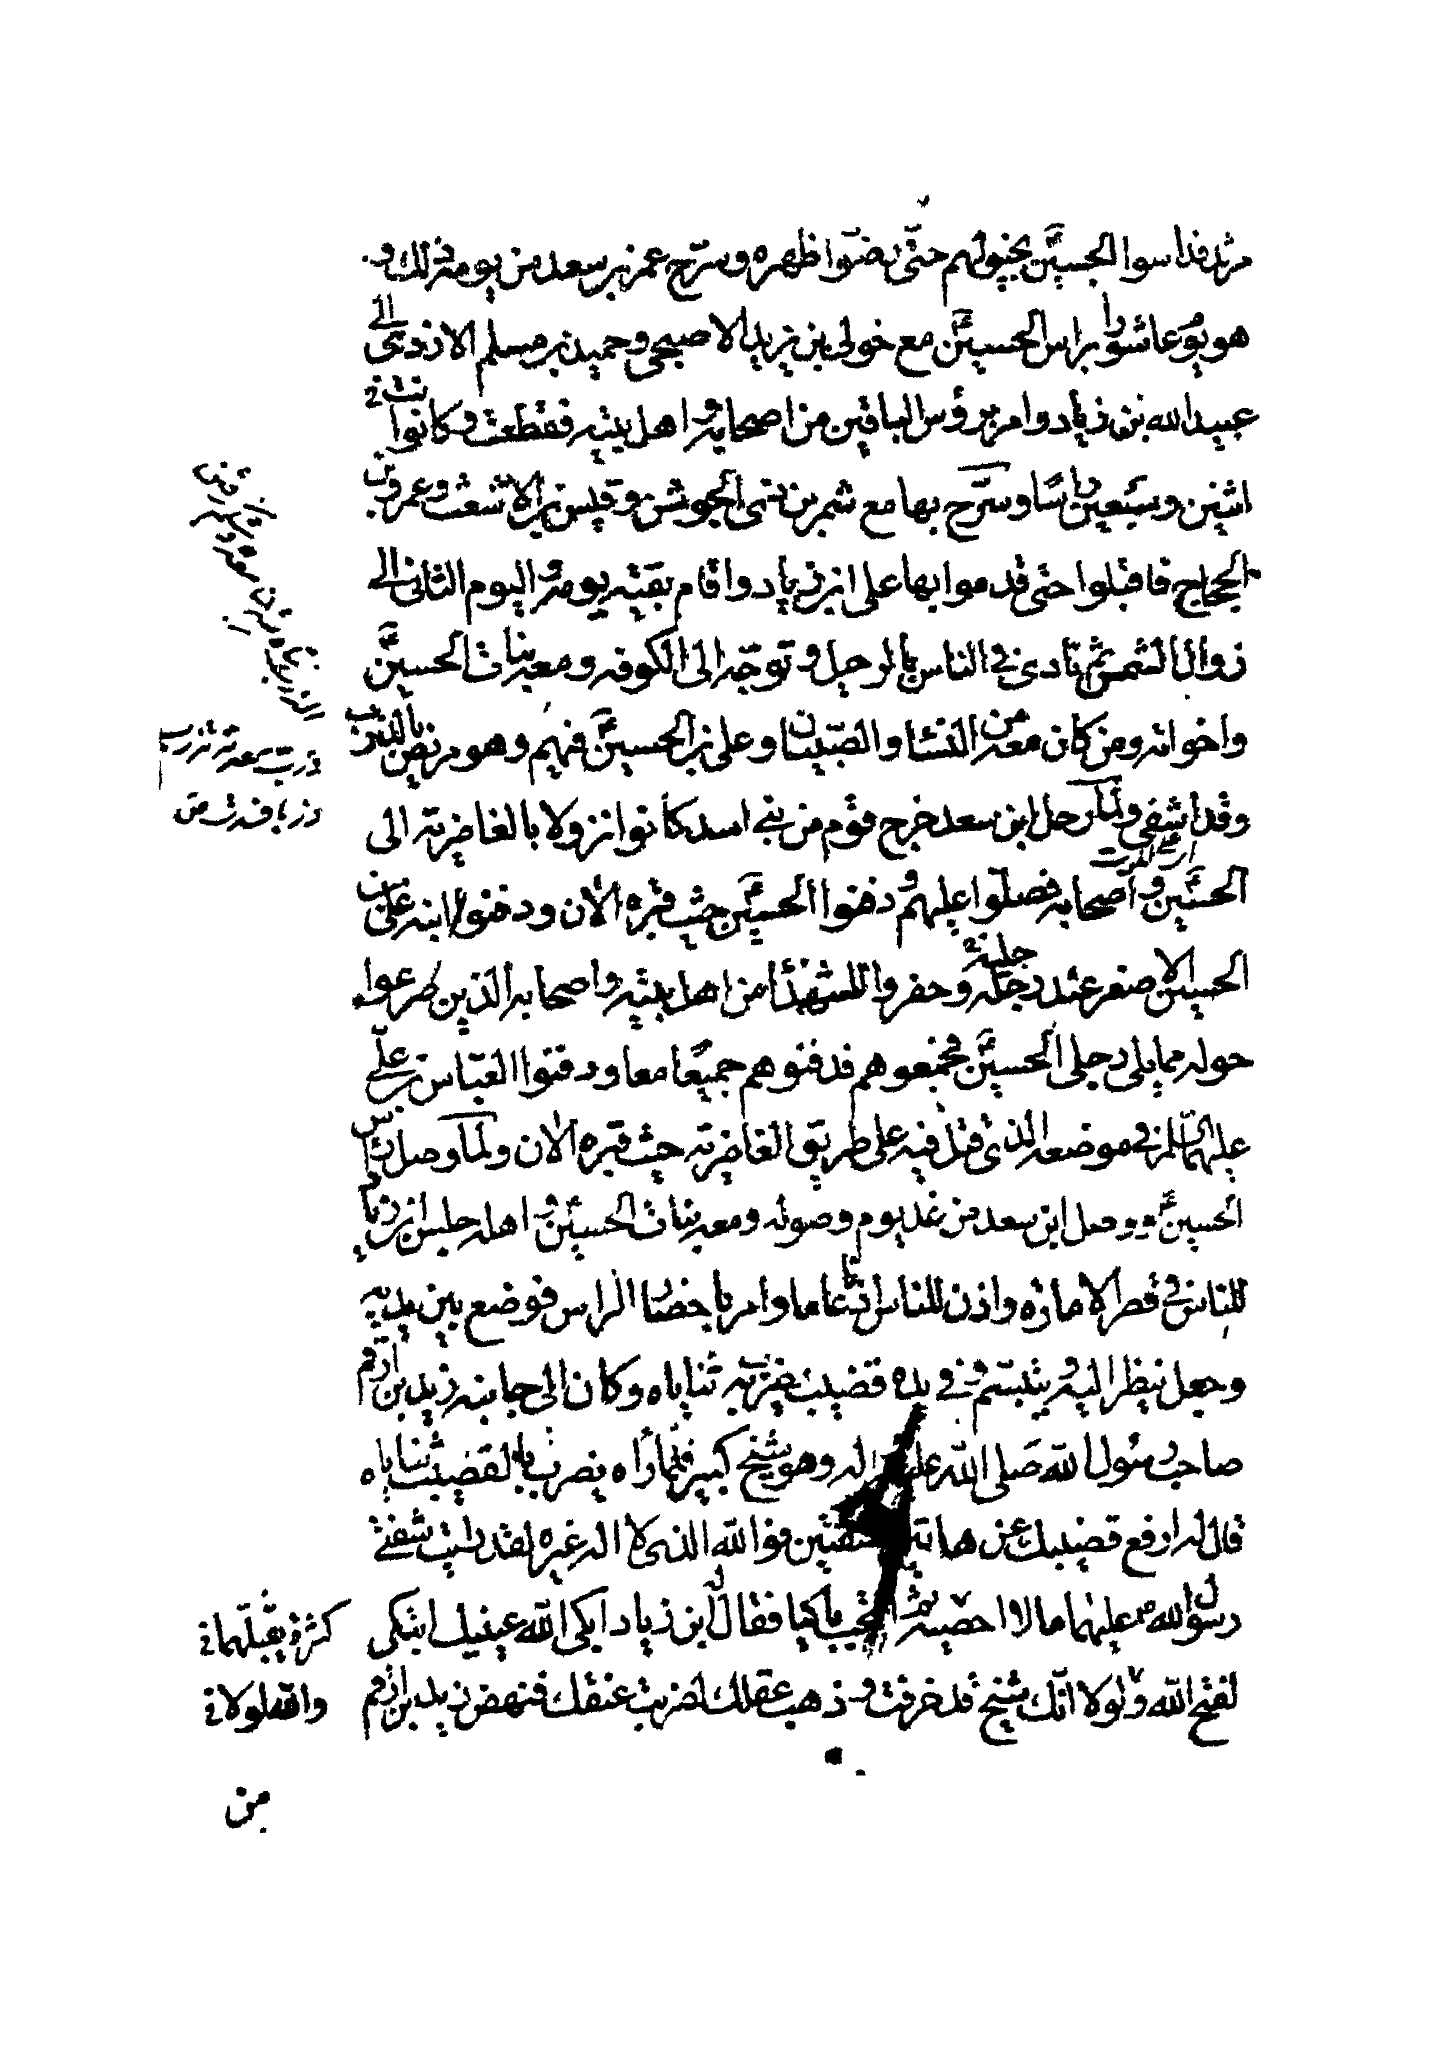 مرثد فداسوا الحسين ع بخيولهم حتى رضوا ظهره وسرح عمر بن سعد من يومه ذلك و
هو يوم عاشورا براس الحسين ع مع خولي بن يزيد الاصبحي وحميد بن مسلم الازدي الى
عبيد الله بن زياد وامر برؤس الباقين من اصحابه و اهل بيته فقطعت وكانوا
اثنين وسبعين راسا وسرح بها مع شمر بن ذي الجوشن وقيس بن الاشعث وعمرو بن
الحجاج فاقبلوا حتى قدموا بها على ابن زياد واقام بقيته يومه واليوم الثاني الى
زوال الشمس ثم نادى في الناس بالرحيل و توجه الى الكوفه ومعه بنات الحسين ع
واخواته ومن كان معه من النسا والصبيان وعلى بن الحسين ع فيهم وهو مريض بالذرب
وقد اشفى ولما رحل ابن سعد خرج قوم من بنى اسد كانوا نزولا بالغاضرية الى
الحسين ع و اصحابه فصلوا عليهم و دفنوا الحسين ع حيث قبره الان ودفنوا ابنه على بن
الحسين الاصغر عند رجله وحفروا للشهدا من اهل بيته واصحابه الذين صرعوا
حوله مما يلى رجلى الحسين ع فجمعوهم فدفنوهم جميعا معا ودفنوا العباس بن على
عليهما السلم في موضعه الذى قتل فيه على طريق الغاضرية حيث قبره الان ولما وصل راس
الحسين ع ووصل ابن سعد من غد يوم وصوله ومعه بنات الحسين ع و اهله جلس ابن زياد
للناس في قصر الاماره واذن للناس اذنا عاما وامر باحضار الراس فوضع بين يديه
وجعل ينظر اليه و يتبسم و في يده قضيب يضرب به ثناياه وكان الى جانبه زيد بن ارقم
صاحب رسول الله صلى الله عليه واله وهو شيخ كبير فلما راه يضرب بالقضيب ثناياه
قال له ارفع قضيبك عن هاتين الشفتين فوالله الذى لا اله غيره لقد رايت شفتي
رسول الله ص عليهما مالا احصيه ثم انتحب باكيا فقال له ابن زياد ابكى الله عينيك اتبكى
كثرة يقبلهما
لفتح الله ولولا انك شيخ قد خرفت و ذهب عقلك لضربت عنقك فنهض زيد بن ارقم
والله لولا
من